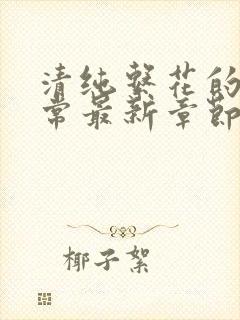 清纯校花的
常最新章节
椰子絮